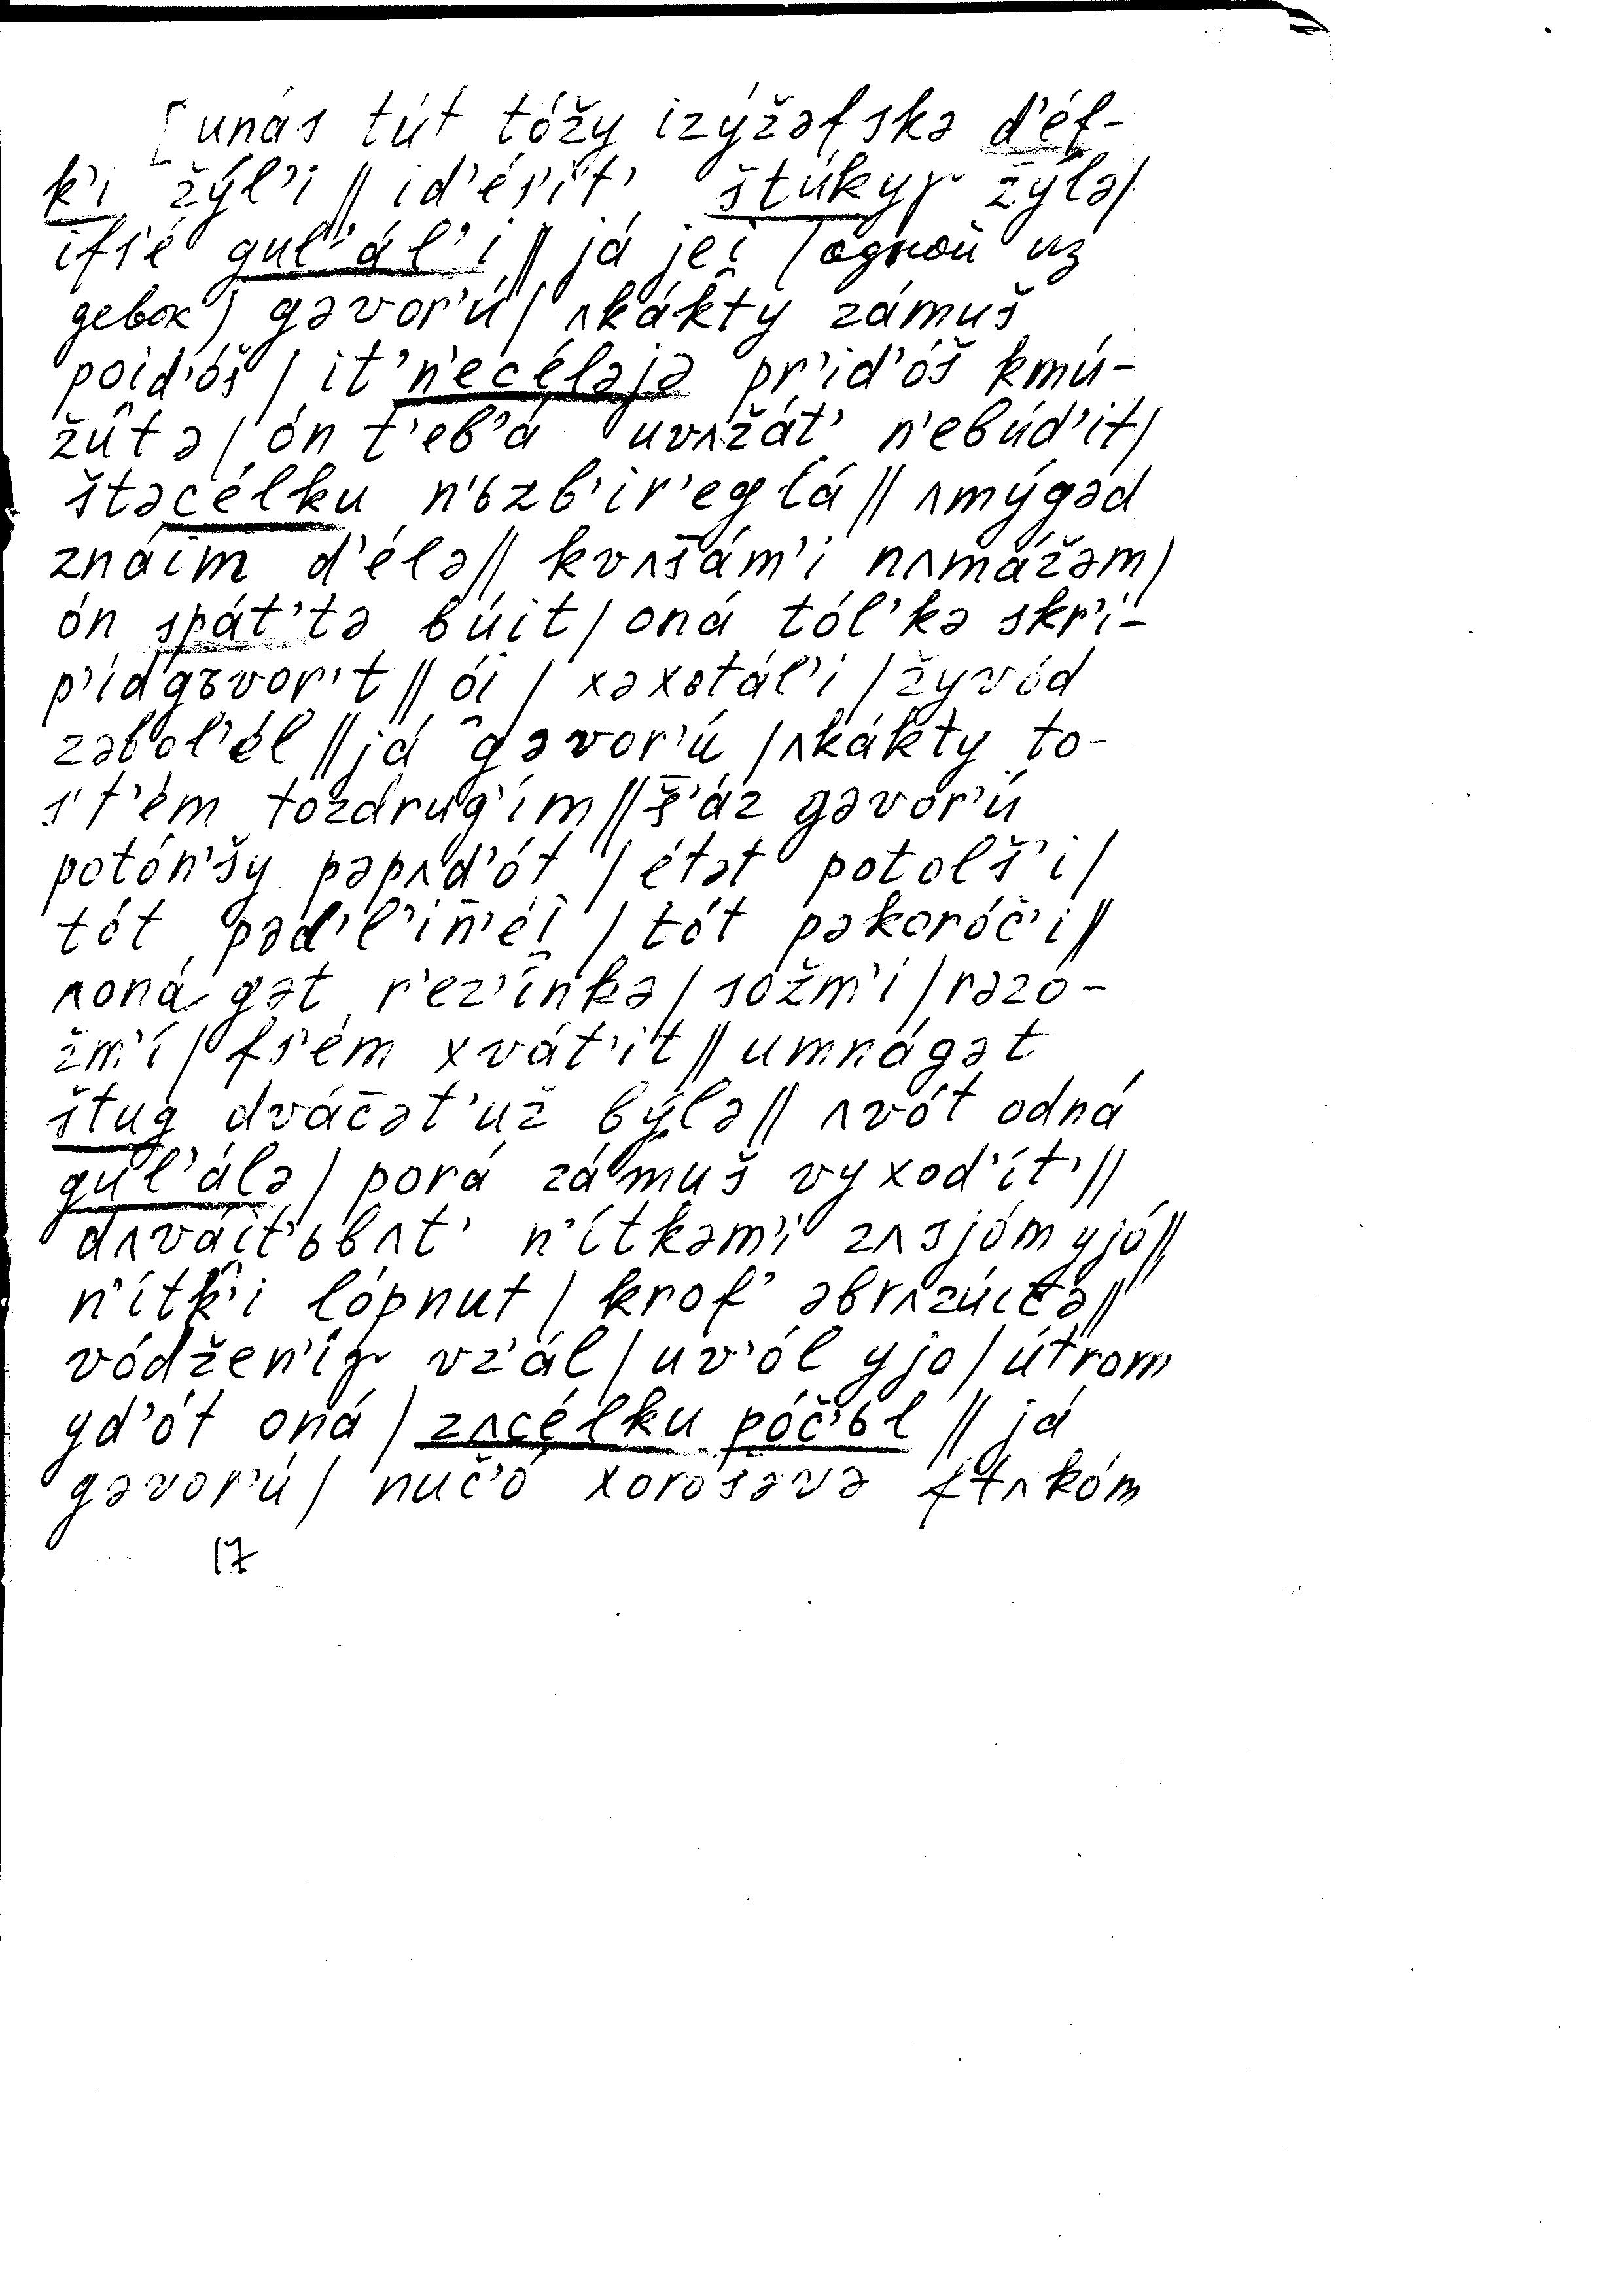 [unás tút tóžy izýžəfskə d'éf-
k'i žýl'i // id'és'it' štúkyp žýlə/
ifs'é gul'ál'i // já jei̯ (одной из
девок) gəvor'ú / ʌkákty zámuš
poi̯d'óš / it'n'ecéləjə pr'id'óš kmú-
žûtə / ón t'eb'á uvʌžát' n'ebúd'it/
štəcélku n'ьzb'ir'eglá // ʌmýgəd
znáim d'élə // kvʌšám'i nʌmážəm/
ón spát'tə búit / oná tól'kə skr'i-
p'ídgəvor'ıt // ói̯ / xəxotál'i / žyvód
zəbol'él // já gəvor'ú / ʌkákty to-
s't'ém tozdrug'ím // š'áz gəvor'ú
potón'šy pəpʌd'ót / étət potolš'i /
tót pəd'l'in'éi̯ / tót pəkoróč'i //
ʌoná gət r'ez'ínkə / sožm'i / rəzo-
žm'í / fs'ém xvát'it // umnágət
štug dváčət'už býlə // ʌvót odná
gul'álə / porá zámuš vyxod'ít' //
dʌvái̯t'ьbʌt' n'ítkəm'i zʌsjóm yjó //
n'ítk'i lópnut / krof' əbrʌzúi̯tə //
vódžen'ip vz'ál / uv'ól yjo / útrom
yd'ót oná / zʌcélku póč'ьl // já
gəvor'ú / nuč'ó xorošəvə ftʌkóm
17